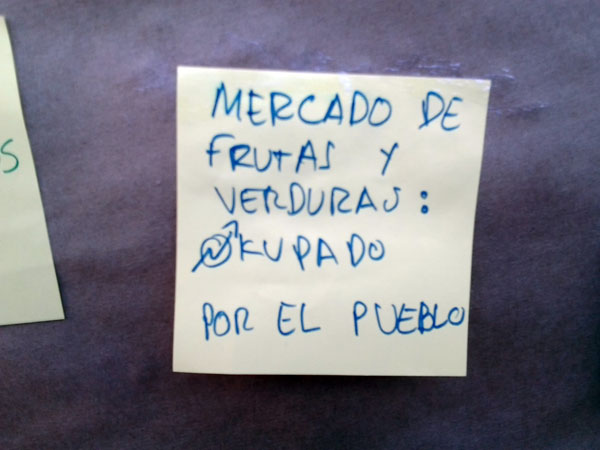 MERCADO DE
FRUTAS Y
VERDURAS:
OKUPADO
POR EL PUEBLO
OS